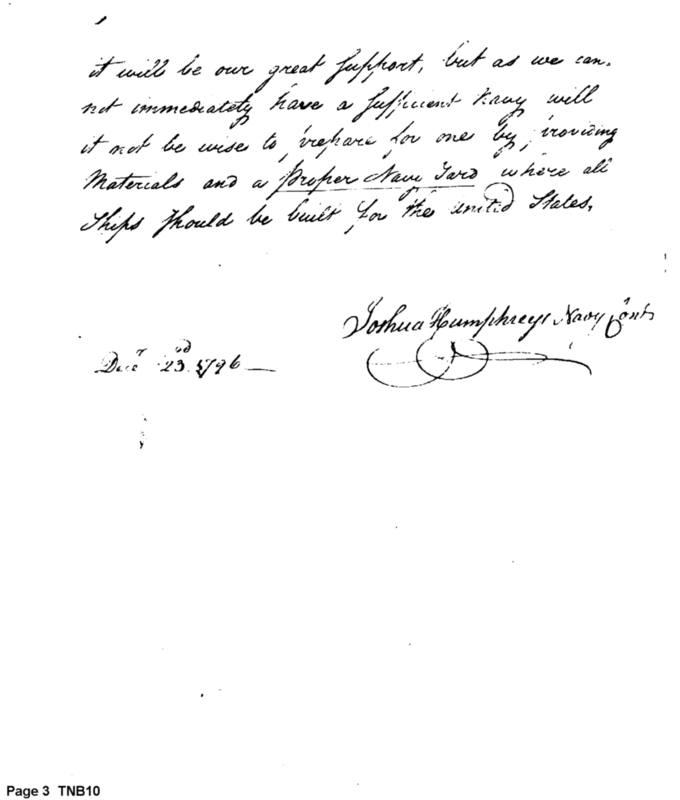 it will be our great support, but as we can-
not immediately have a sufficient Navy will
it not be wise to prepare for one by providing
Materials and a Proper Navy Yard where all
Ships should be built for the United States.
Joshua Humphreys Navy Const
Decr 23rd 1796
Page 3 TNB10